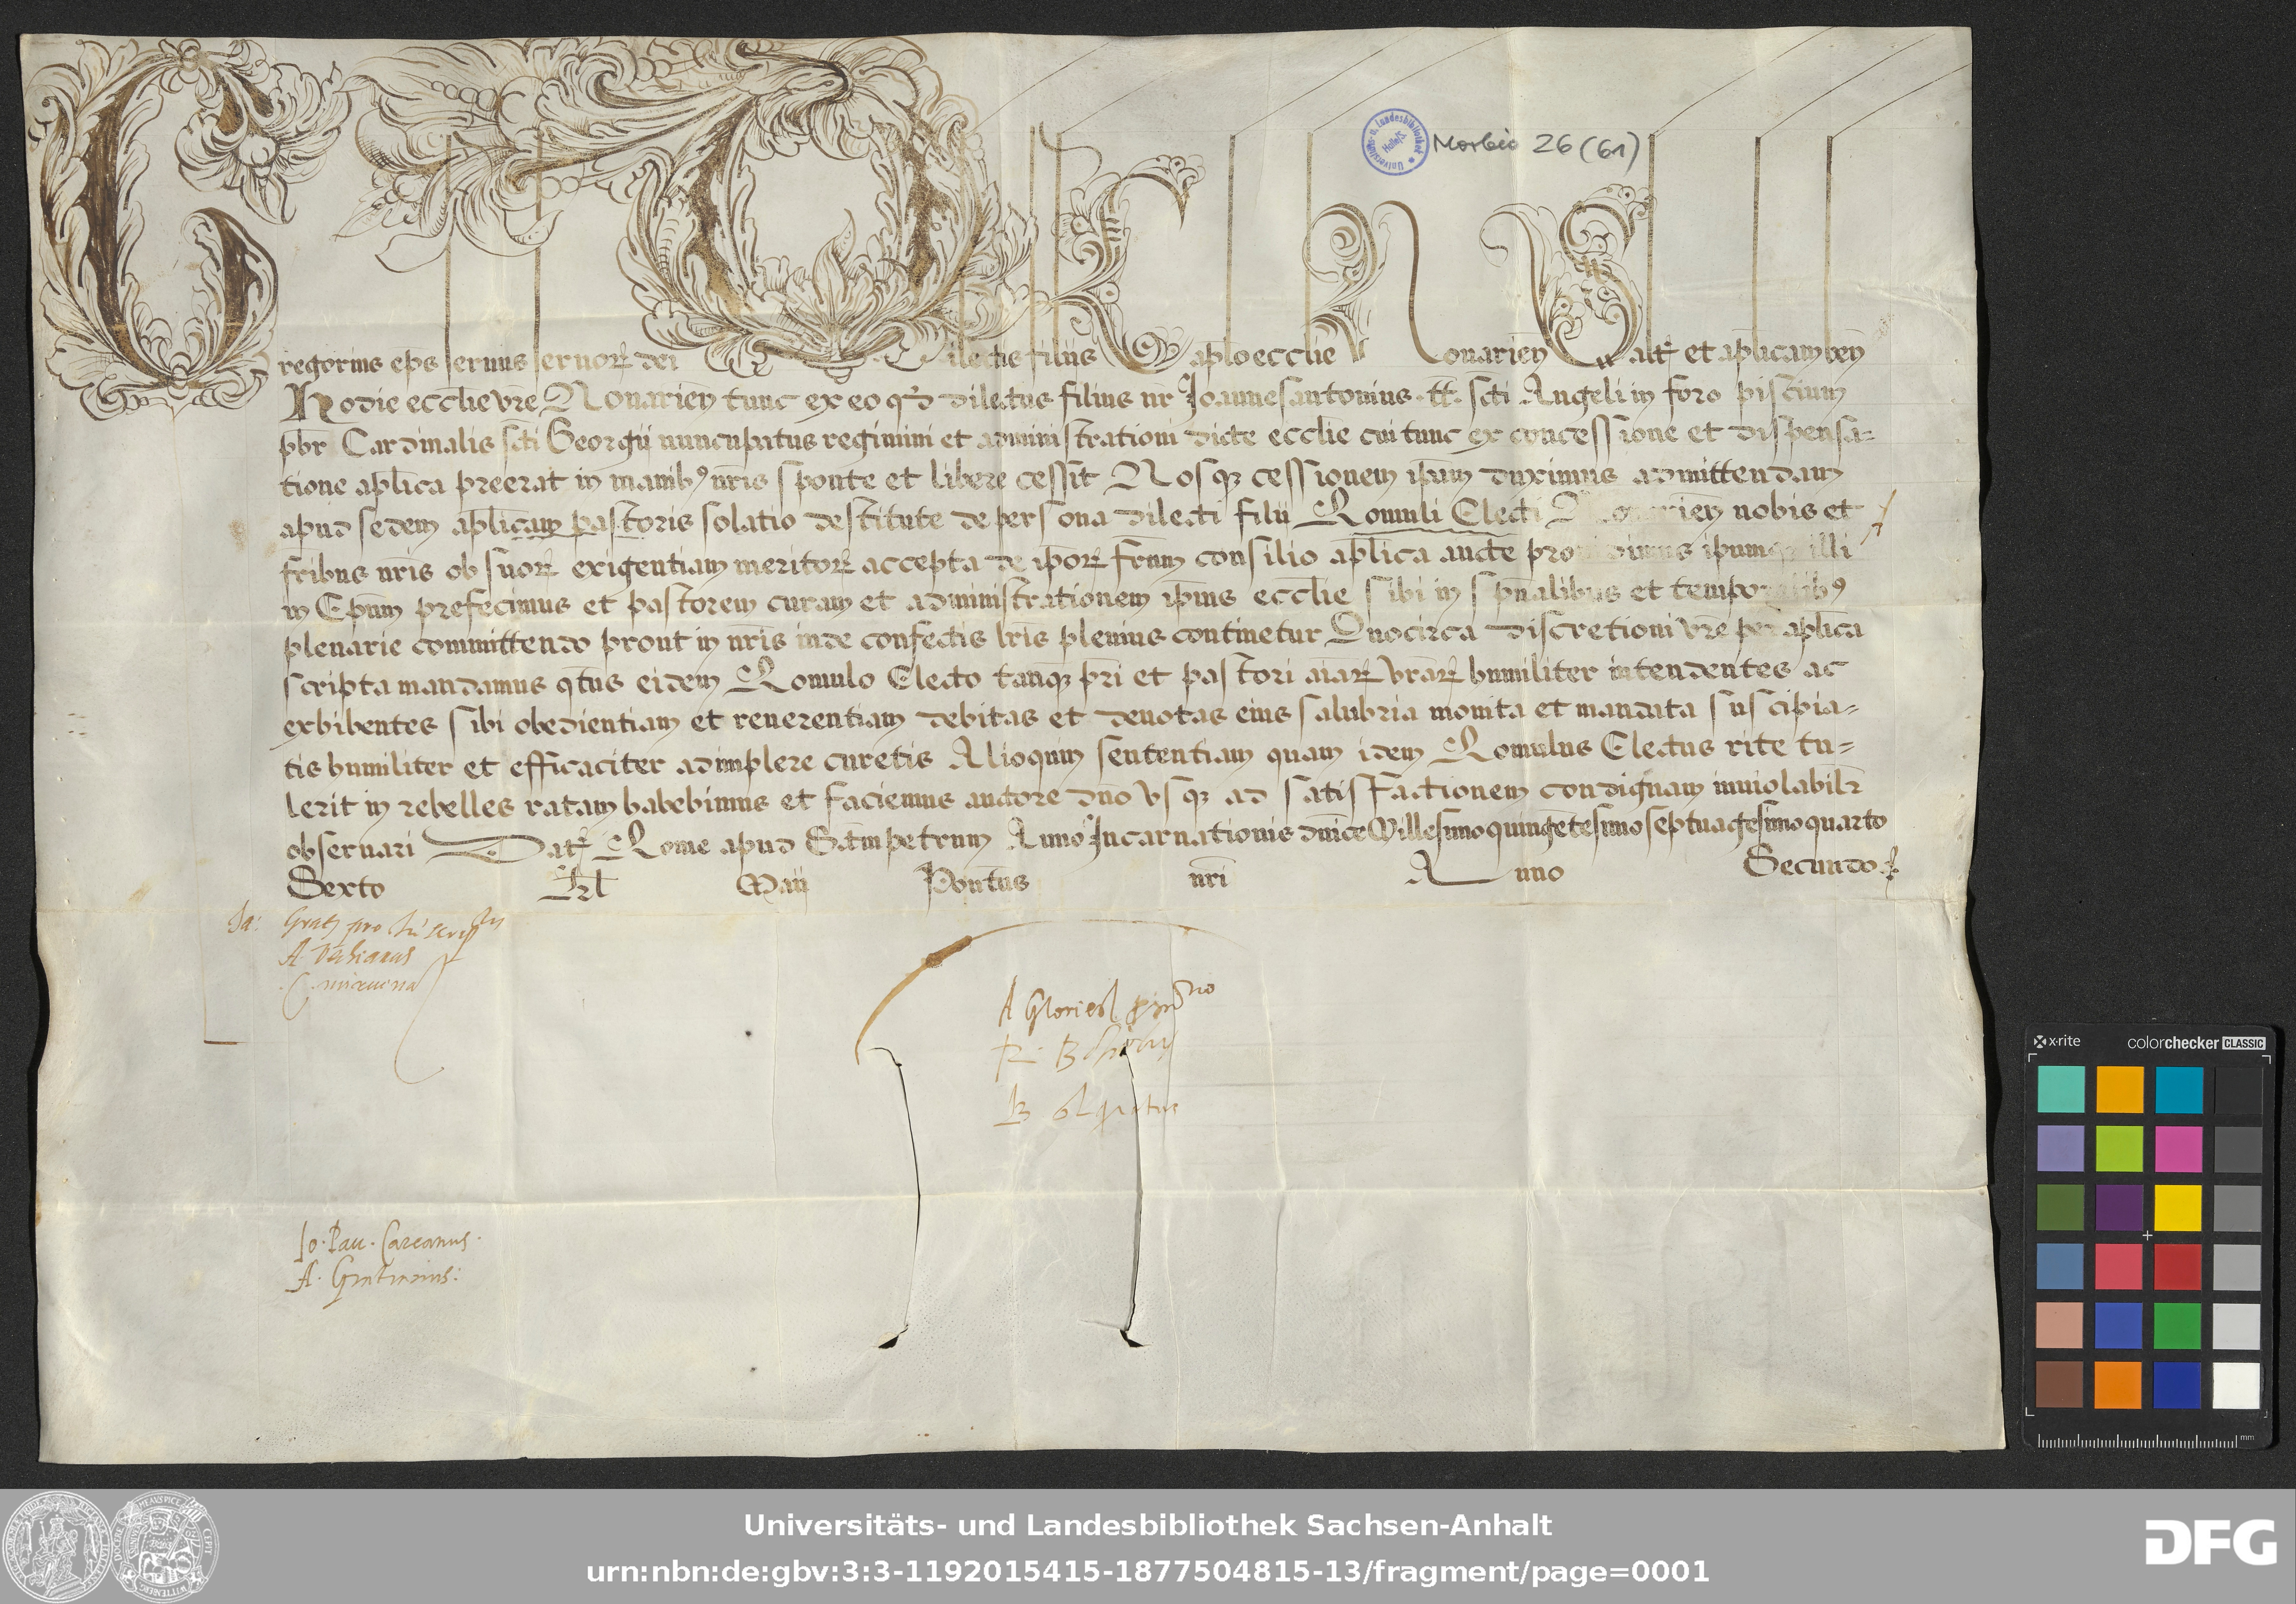 Morbio 26 (61)
Gregorius ep̃s seruus seruoꝝ dei Dilectis filiis Capľo eccľie Nouarien̄ Salt̃ et apľicam ben̄
Hodie eccľie vr̃e Nouarien̄ tunc ex eo qď dilectus filius nr̃ Joannesantonius .tt̃. sc̃ti Angeli in foro piscium
pbr̃ Cardinalis sc̃ti Georgii nuncupatus regimini et administrationi dicte eccľie cui tunc ex concessione et dispensa=
tione apľica preerat in manibꝰ nr̃is sponte et libere cessit Nosqꝫ cessionem ip̃am duximus admittendam
apud sedem apľicam pastoris solatio destitute de persona dilecti filii Romuli Electi Nouarien̄ nobis et
fribus nr̃is ob suoꝝ exigentiam meritoꝝ accepta de ip̃oꝝ frũm consilio apľica aucte prouidimus ipumqꝫ illi
in Ep̃um prefecimus et pastorem curam et administrationem ip̃ius eccľie sibi in sp̃ualibus et temporalibꝰ
plenarie committendo prout in nr̃is inde confectis lr̃is plenius continetur Quocirca discretioni vr̃e per apľica
scripta mandamus qt̃us eidem Romulo Electo tanqꝫ pr̃i et pastori aĩaꝝ vr̃aꝝ humiliter intendentes ac
exhibentes sibi obedientiam et reuerentiam debitas et deuotas eius salubria monita et mandata suscipia=
tis humiliter et efficaciter adimplere curetis Alioquin sententiam quam idem Romulus Electus rite tu=
lerit in rebelles ratam habebimus et faciemus auctore dño vsqꝫ ad satisfactionem condignam inuiolabilr̃
obseruari Dat̃ Rome apud Sc̃tmpetrum Anno Incarnationis dñice Millesimoquingẽtesimoseptuagesimoquarto
Sexto Kľ Maii Pont̃us nr̃i Anno Secundo
Ja:
A Glorieri
Jo. Pau. Careanus.
Universitäts- und Landesbibliothek Sachsen-Anhalt
urn:nbn:de:gbv:3:3-1192015415-1877504815-13/fragment/page=0001
DFG
x-rite
colorchecker CLASSIC
mm